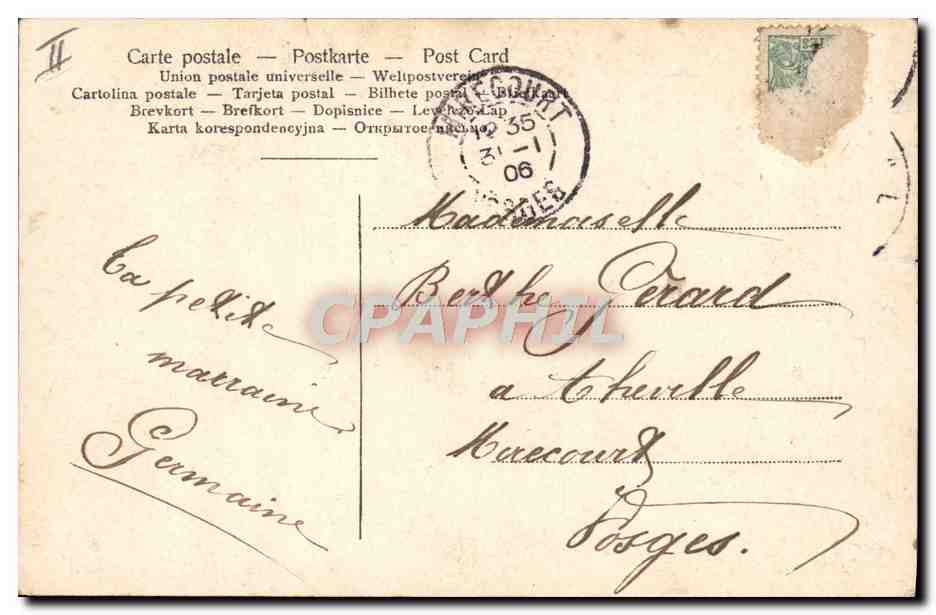 II
Carte postale — Postkarte — Post Card
Union postale universelle — Weltpostverein
Cartolina postale — Tarjeta postal — Bilhete postal — Briefkaart
Brevkort — Brefkort — Dopisnice — Levelező-Lap
Karta korespondencyjna — Открытое письмо
MIRECOURT
12 35
31 -1
06
VOSGES
Mademoiselle
Berthe Gérard
a
Mirecourt
Vosges.
Ta petite
marraine
Germaine
CPAPHIL